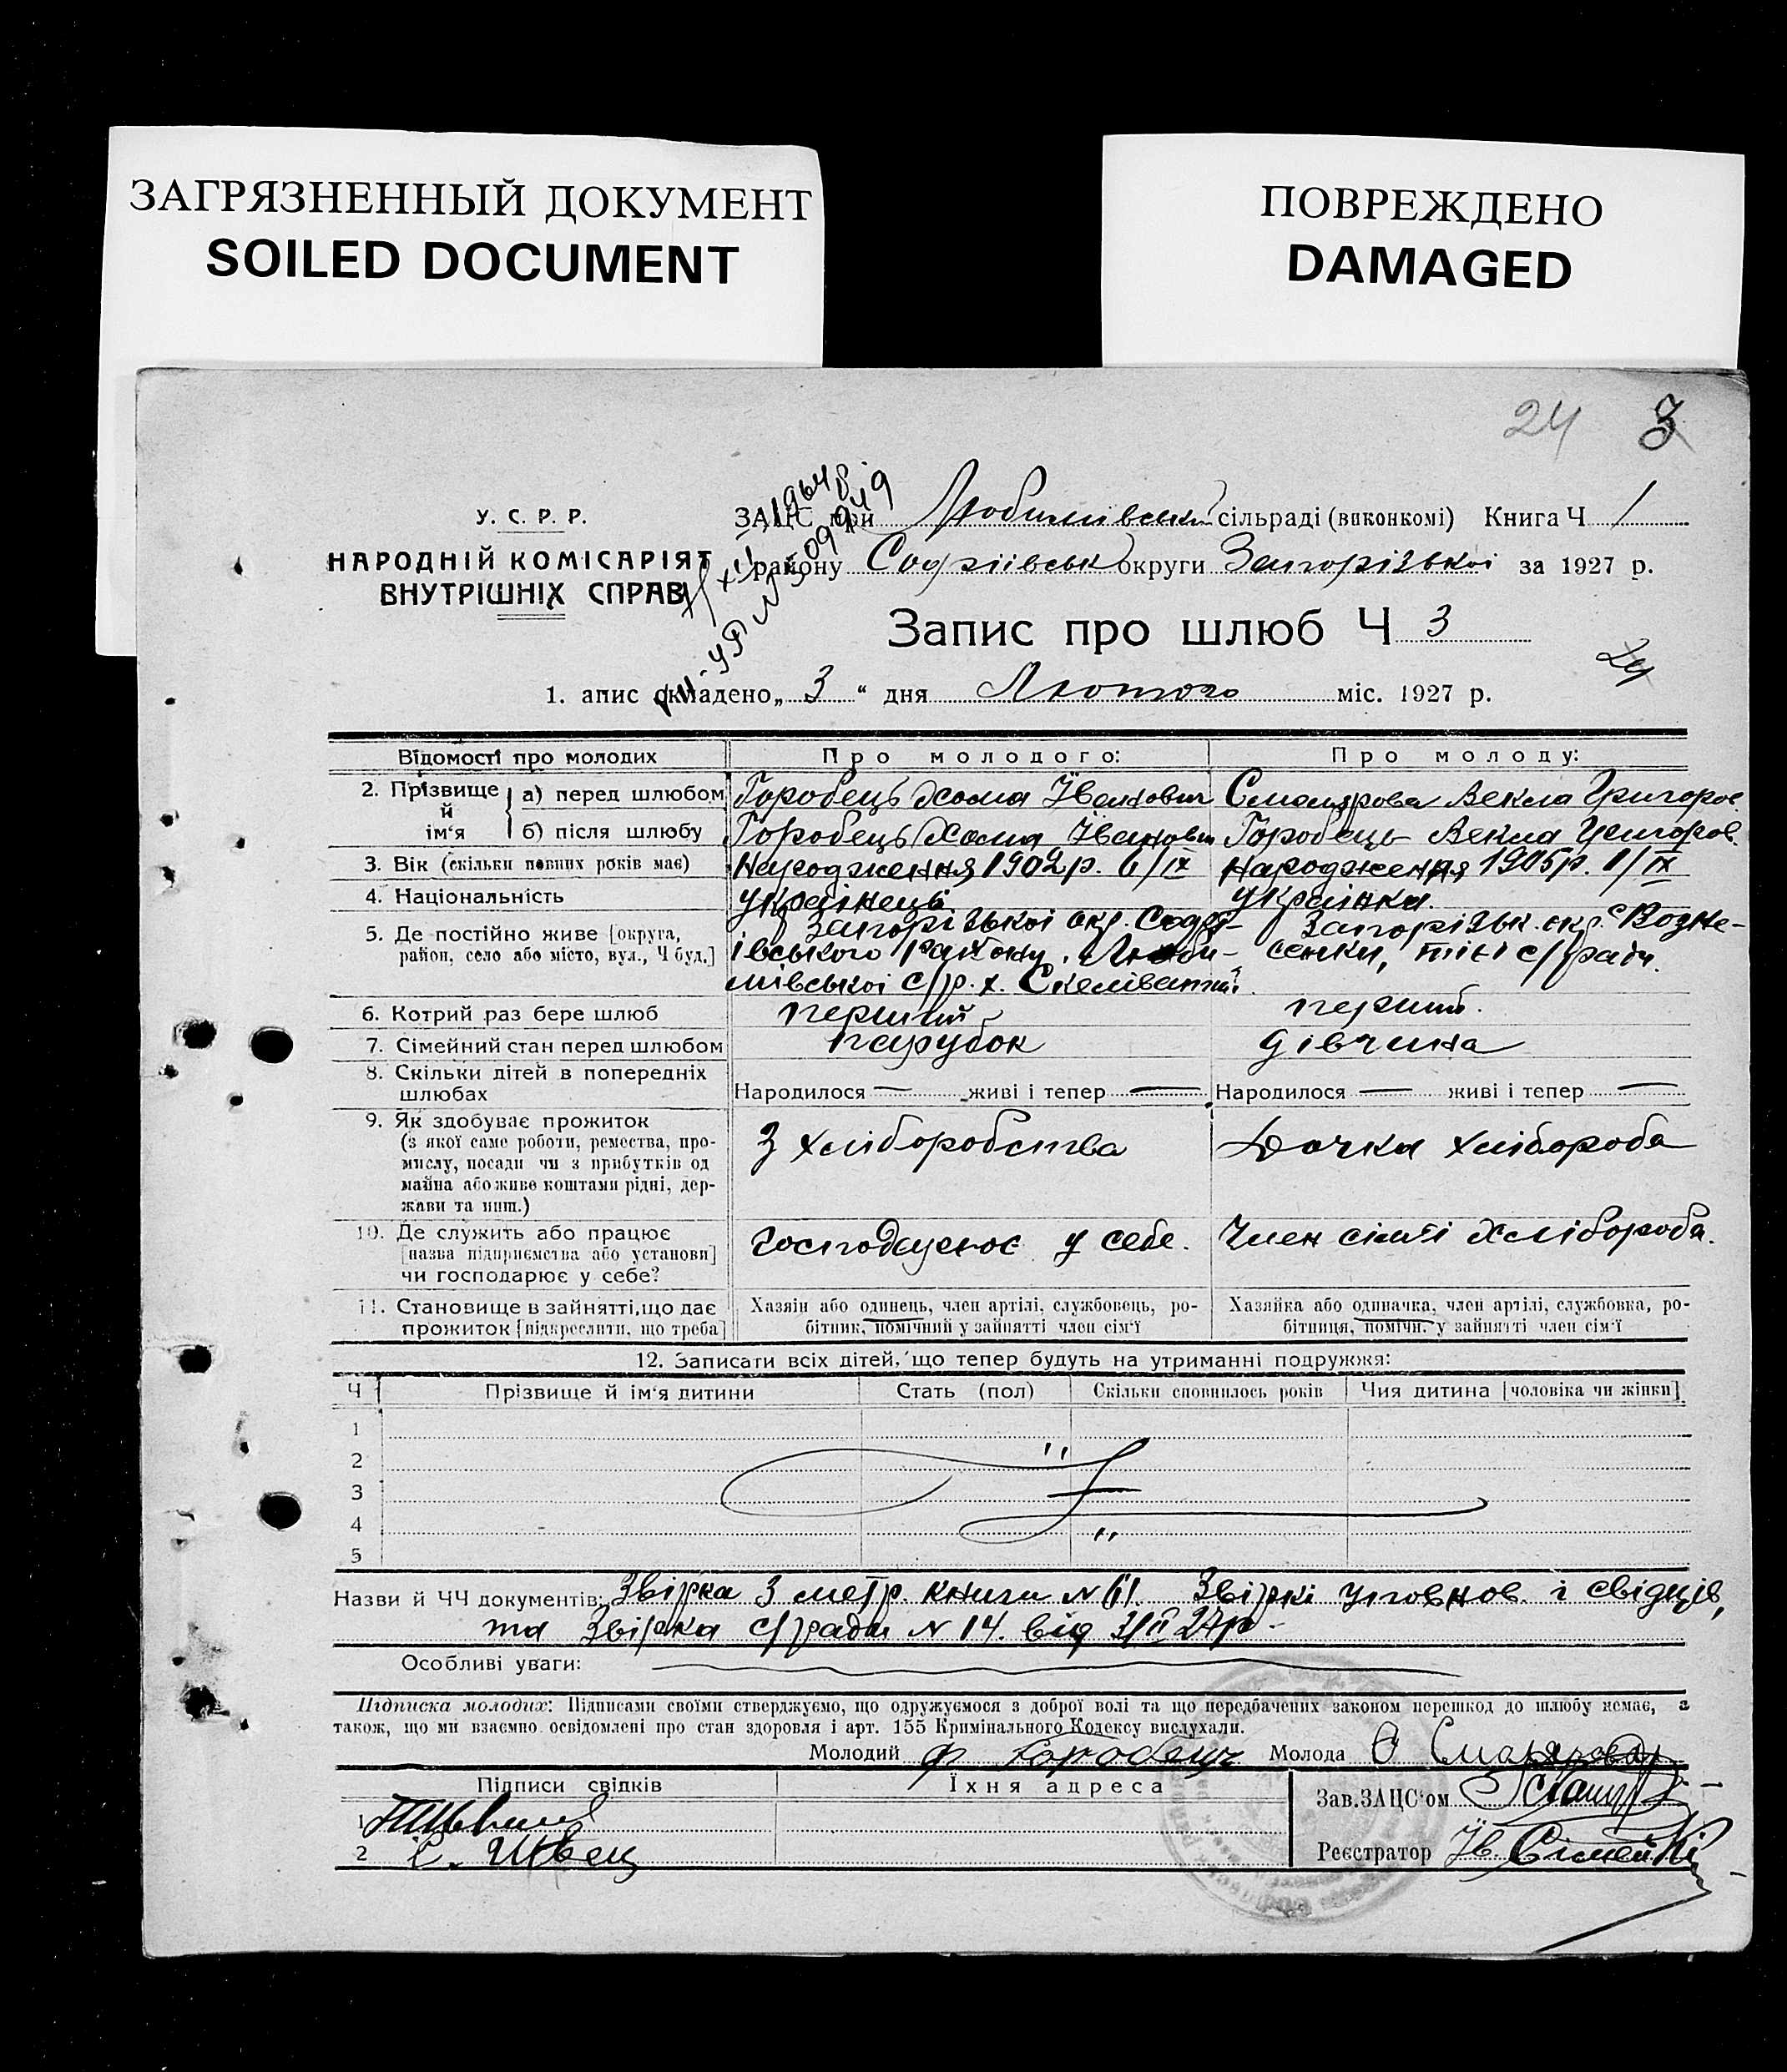 ЗАГРЯЗНЕННЫЙ ДОКУМЕНТ
SOILED DOCUMENT
ПОВРЕЖДЕНО
DAMAGED
24 3
У. С. Р. Р.
НАРОДНІЙ КОМІСАРІЯТ
ВНУТРІШНІХ СПРАВ
ЗАЦС при Любимівській сільраді (виконкомі) Книга Ч 1
району Софіївськ округи Запорізької за 1927 р.
Запис про шлюб Ч 3
24
1. апис складено „3“ дня Лютого міс. 1927 р.
Відомості про молодих Про молодого: Про молоду:
2. Прізвище й ім'я а) перед шлюбом Горобець Хома Іванович Векла Григоров.
б) після шлюбу Горобець Хома Іванович Горобець Векла Григоров.
3. Вік (скільки повних років має) Народження 1902 р. 6/IX Народження 1905 р. 1/IX
4. Національність українець українка.
5. Де постійно живе [округа, район, село або місто, вул., Ч буд.] Запорізької окр. Софі-
івського Району. Люби-
мівської с/р. х.
Запорізьк. окр. с Возне-
сенки, тії ж с/ради.
6. Котрий раз бере шлюб перший перший.
7. Сімейний стан перед шлюбом парубок дівчина
8. Скільки дітей в попередніх шлюбах Народилося — живі і тепер — Народилося — живі і тепер —
9. Як здобуває прожиток З хліборобства Дочка хлібороба
(з якої саме роботи, ремества, про-
мислу, посади чи з прибутків од
майна або живе коштами рідні, дер-
жави та инш.)
10. Де служить або працює господарює у себе. Член сім'ї Хлібороба.
[назва підприємства або установи]
чи господарює у себе?
11. Становище в зайнятті, що дає прожиток [підкреслити, що треба]
Хазяїн або одинець, член артілі, службовець, ро-
бітник, помічний у зайнятті член сім'ї
Хазяйка або одиначка, член артілі, службовка, ро-
бітниця, помічн. у зайнятті член сім'ї
12. Записати всіх дітей, що тепер будуть на утриманні подружжя:
Ч Прізвище й ім'я дитини Стать (пол) Скільки сповнилось років Чия дитина [чоловіка чи жінки]
1
2
3
4
5
Назви й ЧЧ документів: Звірка з метр. книги N 61. Звіркі уповнов. і свідців,
та Звірка с/ради N 14. від 3/II 27р.
Особливі уваги:
Підписка молодих: Підписами своїми стверджуємо, що одружуємося з доброї волі та що передбачених законом перешкод до шлюбу немає, а
також, що ми взаємно освідомлені про стан здоровля і арт. 155 Кримінального Кодексу вислухали.
Молодий Ф Горобець Молода
Підписи свідків Їхня адреса Зав. ЗАЦС'ом
1
2 Швец
Реєстратор Ів.